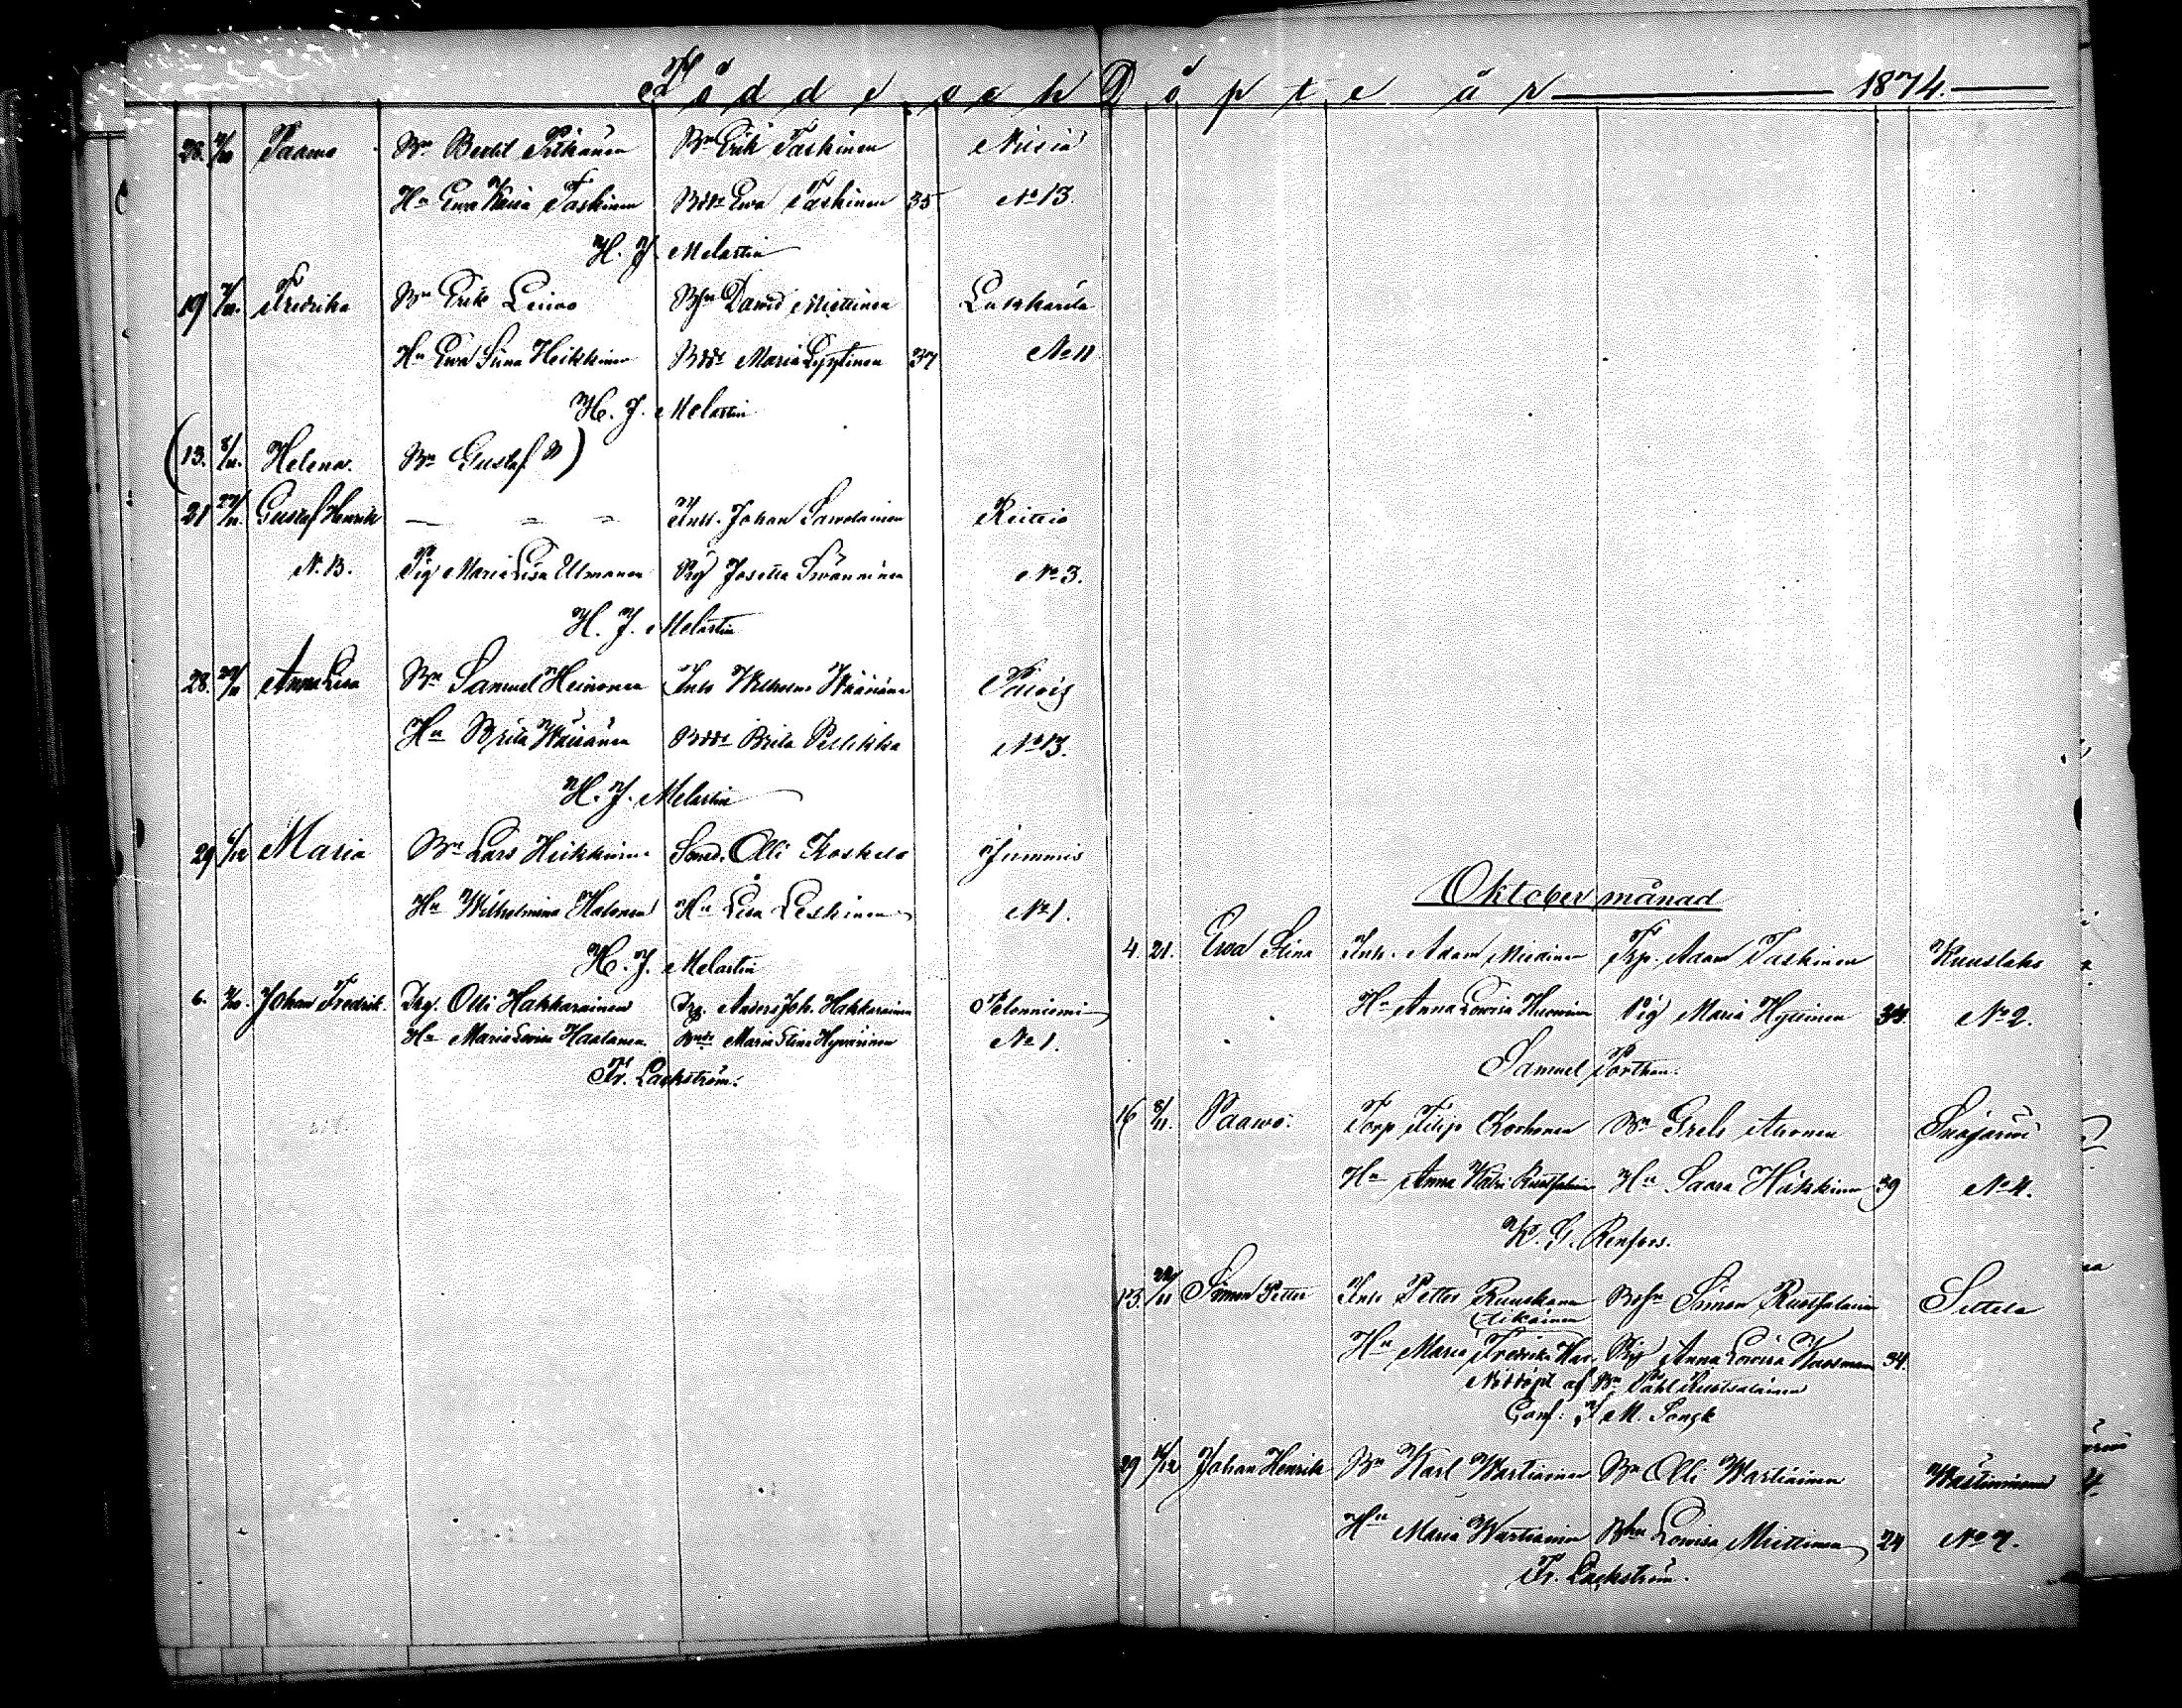 Födde och Döpte år 1874.
28. Paavo Bn Bertil Pitkänen Bn Erik Taskinen Nisiä
Hu Ewa Kaisa Taskinen Bdtr Ewa Taskinen 35 No 13.
H. J. Melartin
19 Fredrika Bn Erik Leiwo Bsn David Miettinen Lukkarila
Hu Ewa Stina Heikkinen Bdtr Maria Lyytinen 37 No 11
H. J. Melartin
(13. 8/11. Helena. Bn Gustaf)
21 22/11. Gustaf Henrik — = = Inh. Johan Savolainen Reittiö
N. B. Pig Maria Lisa Ulmanen Pig Josefia No 3.
H. J. Melartin
28. Anna Lisa Bn Samuel Heinonen Inh Wilhelm Wäisänen
Hu Brita Wäisänen Bdtr Brita Pellikka No 13.
H. J. Melartin
29 Maria Bn Lars Heikkinen Olli Koskelo Jummis
Hu Wilhelmina Halonen Hu Lisa Leskinen No 1.
H. J. Melartin
6. Johan Fredrik. Drg. Olli Hakkarainen Drg. Anders Joh. Hakkarainen Pelonniemi
Hu Maria Lovisa Haatanen Maria Stina Hyvärinen No 1.
Fr. Lackström.
Oktober månad
4. 21. Ewa Stina Inh. Adam Miettinen Trp. Adam Taskinen Kuuslaks
Hu Anna Lovisa Pig Maria Hyttinen 34. No 2.
Samuel Porthan.
16 8/11. Paavo. Torp Filip Korhonen Bn Grels Ahonen Siajärvi
Hu Anna Ruotsalainen Hu Saara Häkkinen 39 No 4.
K. G. Renfors.
13. 22/11 Simon Petter Inh Petter Ruuskanen Bsn Simon Ruotsalainen Settela
Hu Maria Fredrika Pig Anna Lovisa Kaasinen 34.
Nöddöpt af Bn Påhl Ruotsalainen
Conf: J M. Tongk
29 Johan Henrik Bn Karl Wartiainen Bn Olli Wartiainen
Hu Maria Wartiainen Bhu Lovisa Miettinen 24 No 7.
Fr. Lackström.